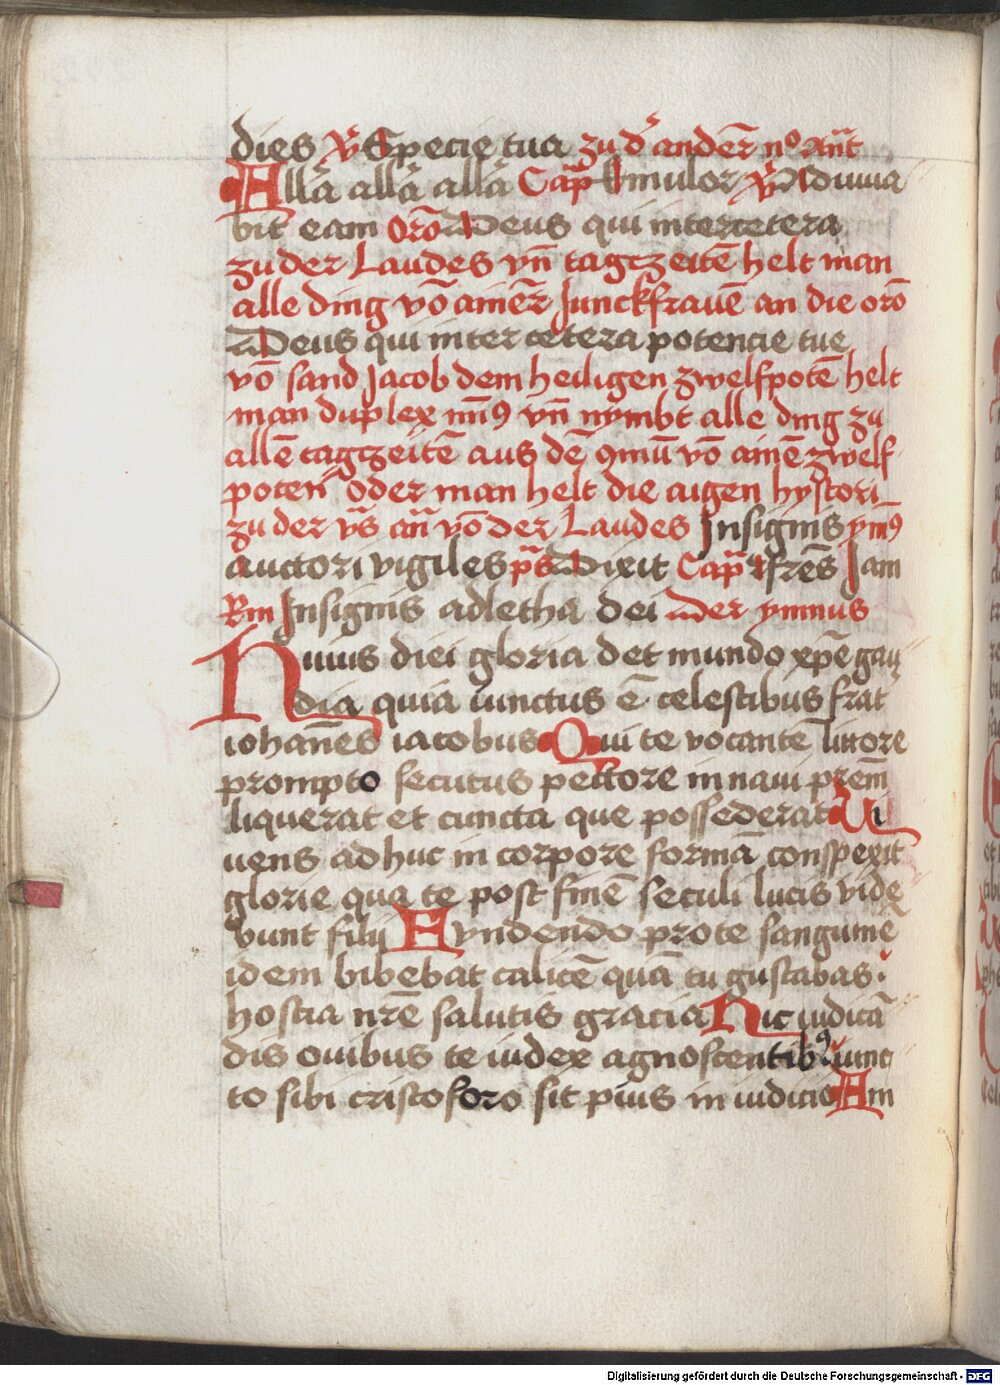 dies v̄s Specie tua zu d᾽ andeȓ n° Ant̄
Allā allā allā Cap̄ Emulor v̄s Adiuua
bit eam Orō Deus qui intercetera
zu der Laudes vn̄ tagtzeitē helt man
alle ding vō aineȓ Junckfrauē an die orō
Deus qui inter cetera potencie tue
vō sand Jacob dem heiligen zwelfpotē helt
man duplex min9 vn̄ nymbt alle ding zu
allē tagtzeitē aus dē 9mū vō ainē zwelf
poten oder man helt die aigen hystori
zu der v̄s an̄ vō der Laudes Insignis ym9
auctori vigiles p̄s Dixit Cap̄ frēs Jam
Rm Insignis adletha dei Der ymnus
Huius diei gloria det mundo xp̄e gau
dia quia iunctus ē celestibus frat
iohan̄es iacobus Qui te vocante littore
prompto secutus pectore in naui prem̄
liquerat et cuncta que possederat Ui
uens adhuc in corpore formā conspexit
glorie qua te post finē seculi lucis vide
bunt filii Fundendo pro te sanguinē
idem bibebat calicē quā tu gustabas
hostia nr̄e salutis gracia Hic iudicā
dis ouibus te iudex agnoscentib9 iunc
to sibi cristoforo sit pius in iudicio Am
Digitalisierung gefördert durch die Deutsche Forschungsgemeinschaft - DFG